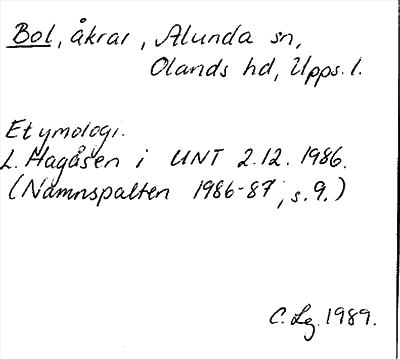 Bol, åkrar, Alunda sn,
Olands hd, Upps. l.
Etymologi.
L. Hagåsen i UNT 2.12.1986.
(Namnspalten 1986-87, s. 9.)
C. Lg. 1989.